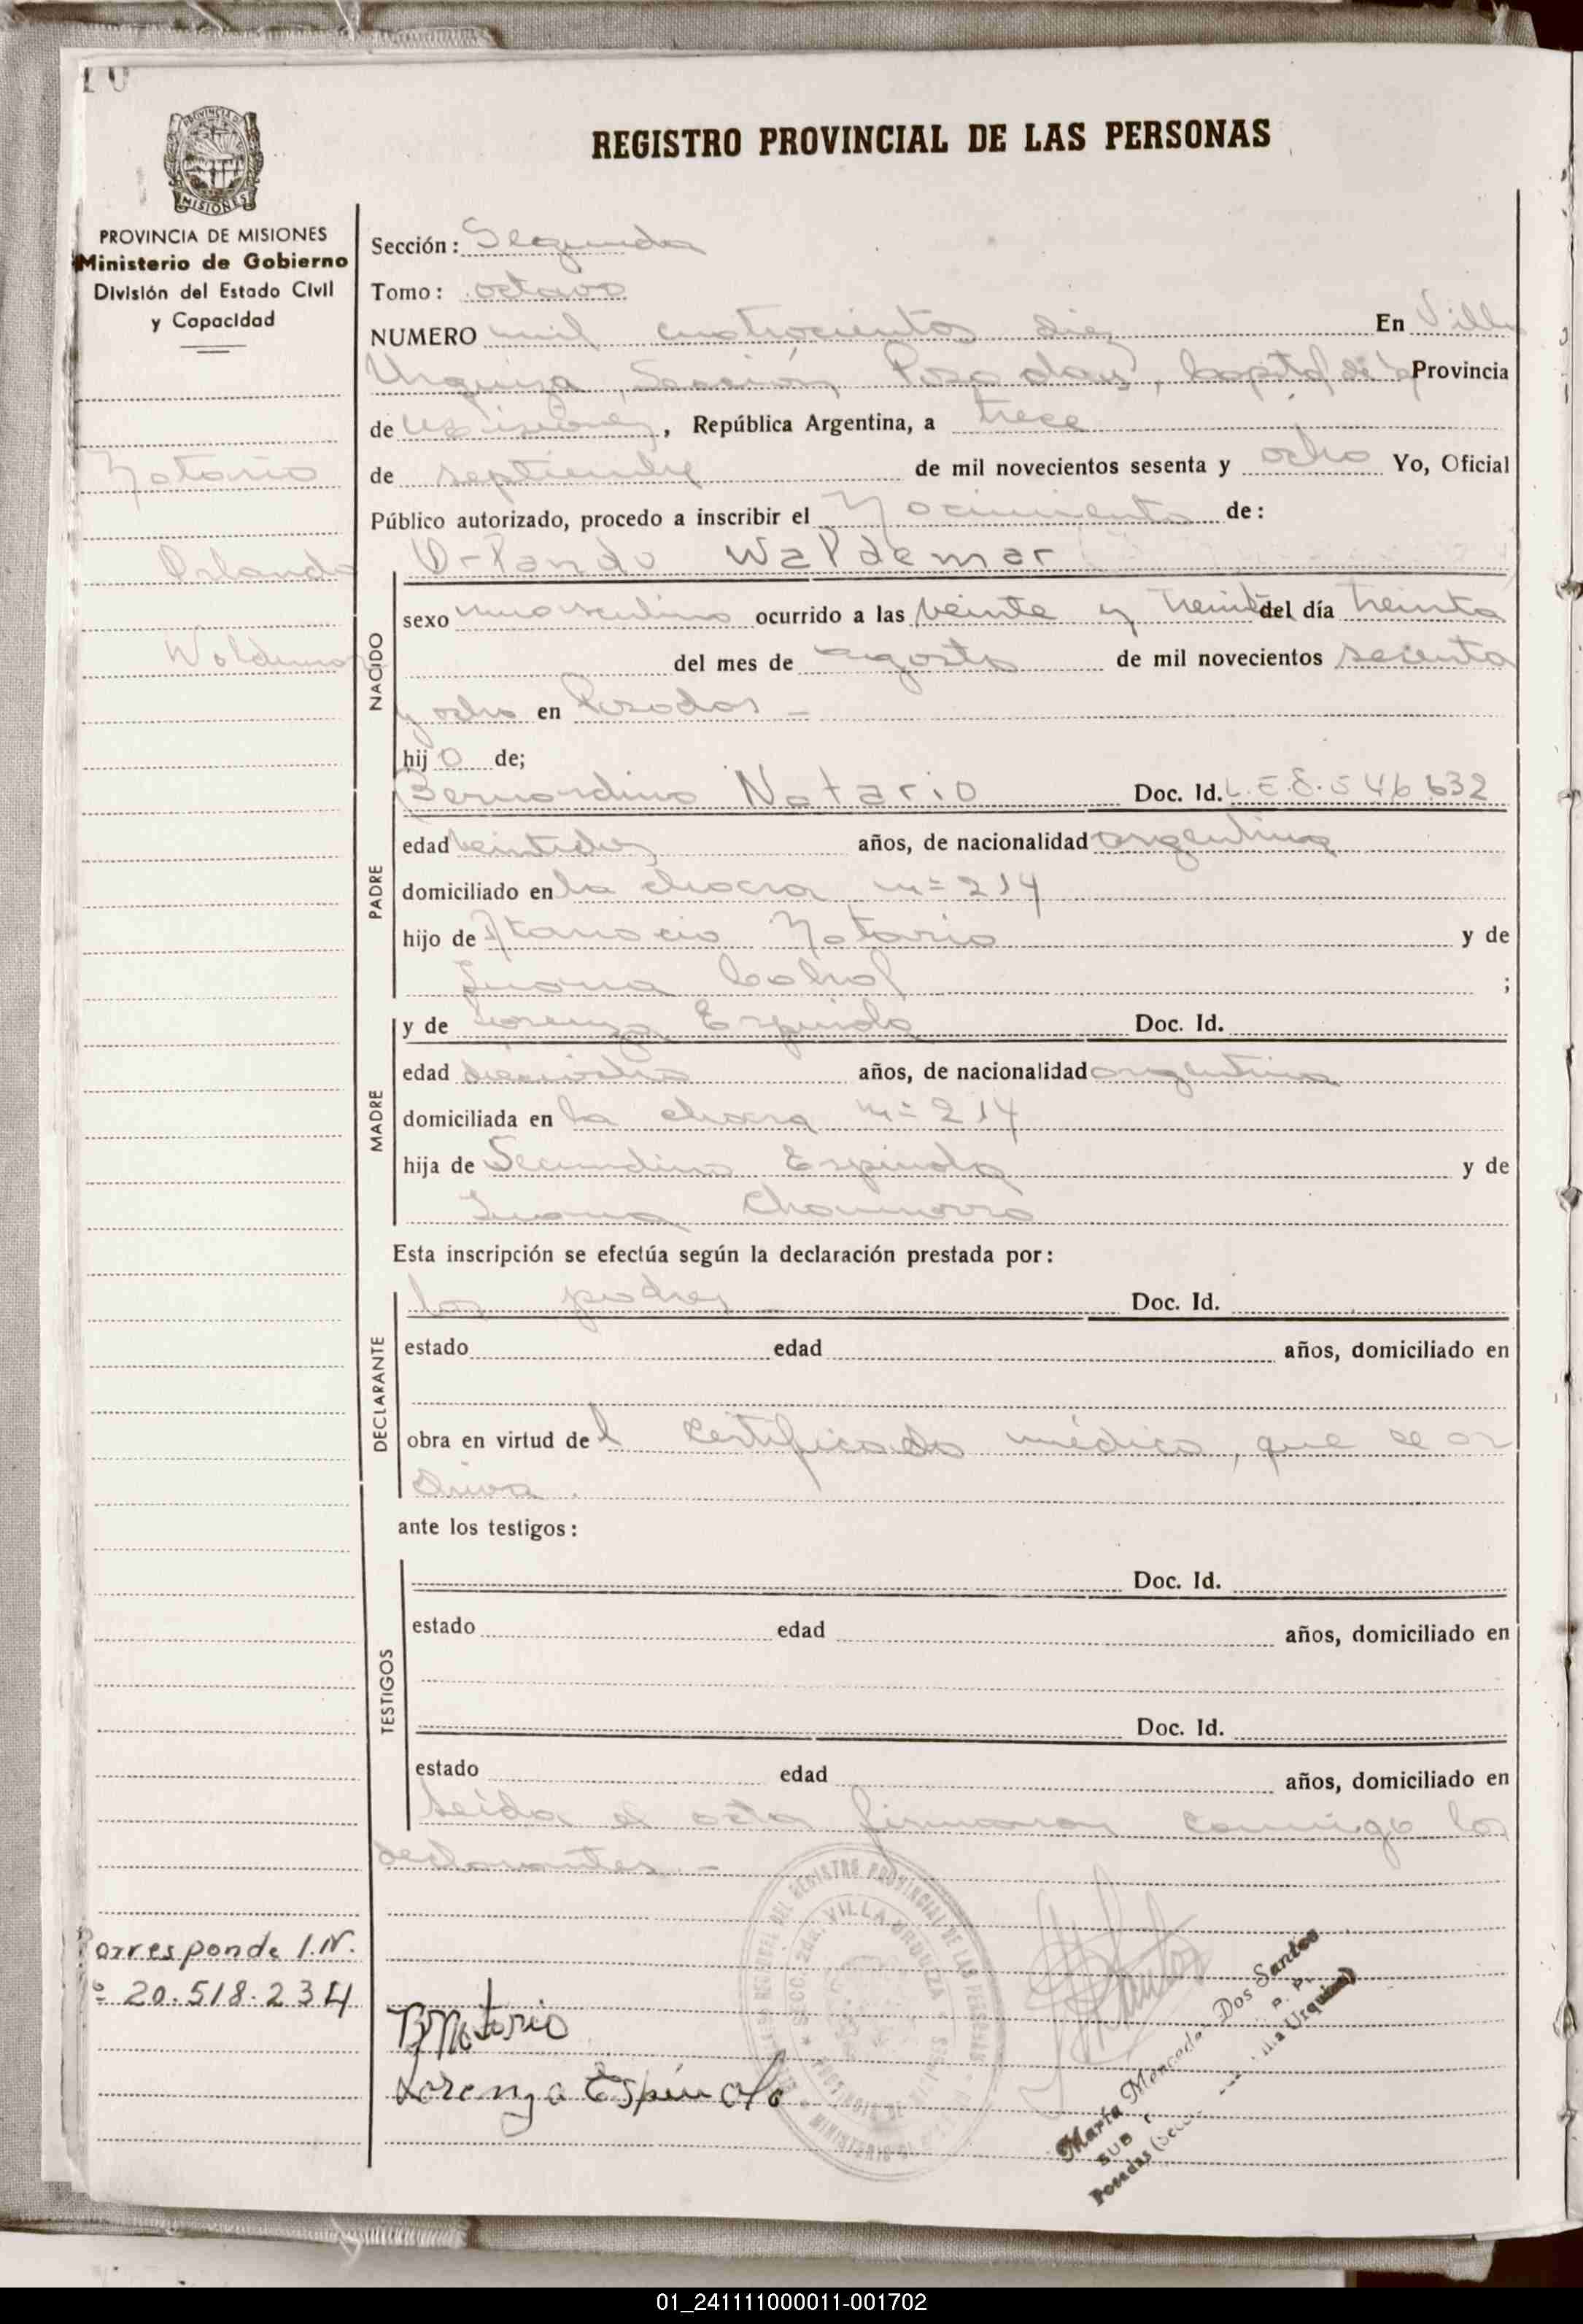 10
REGISTRO PROVINCIAL DE LAS PERSONAS
PROVINCIA DE
MISIONES
PROVINCIA DE MISIONES
Ministerio de Gobierno
División del Estado Civil
y Capacidad
Notario
Orlando
Waldemar
Sección: Segunda
Tomo: octavo
NUMERO mil cuatrocientos diez En Villa
Urquiza, Sección Posadas, Capital de la Provincia
de Misiones, República Argentina, a trece
de septiembre de mil novecientos sesenta y ocho Yo, Oficial
Público autorizado, procedo a inscribir el Nacimiento de:
Orlando Waldemar
NACIDO
sexo masculino ocurrido a las veinte y treinta del día treinta
del mes de agosto de mil novecientos sesenta
y ocho en Posadas -
hijo de;
PADRE
Bernardino Notario Doc. Id. L.E.8.546.632
edad veintidos años, de nacionalidad argentina
domiciliado en la chacra nº 214
hijo de Atanacio Notario y de
Juana Cabral ;
MADRE
y de Lorenza Espinola Doc. Id.
edad dieciocho años, de nacionalidad argentina
domiciliada en la chacra nº 214
hija de Secundino Espinola y de
Juana Chamorro
Esta inscripción se efectúa según la declaración prestada por:
DECLARANTE
los padres - Doc. Id.
estado edad años, domiciliado en
obra en virtud del certificado médico, que se ar
chiva.
ante los testigos:
TESTIGOS
Doc. Id.
estado edad años, domiciliado en
Doc. Id.
estado edad años, domiciliado en
Leida el acta firmaron conmigo los
declarantes -
Corresponde I.N.
º 20.518.234
BNotario
Lorenza Espínola
DEL REGISTRO PROVINCIAL DE LAS PERSONAS
SECC. 2da. VILLA URQUIZA
MINISTERIO
María Mercedes Dos Santos
SUB
Posadas (Secc. Villa Urquiza)
01_241111000011-001702